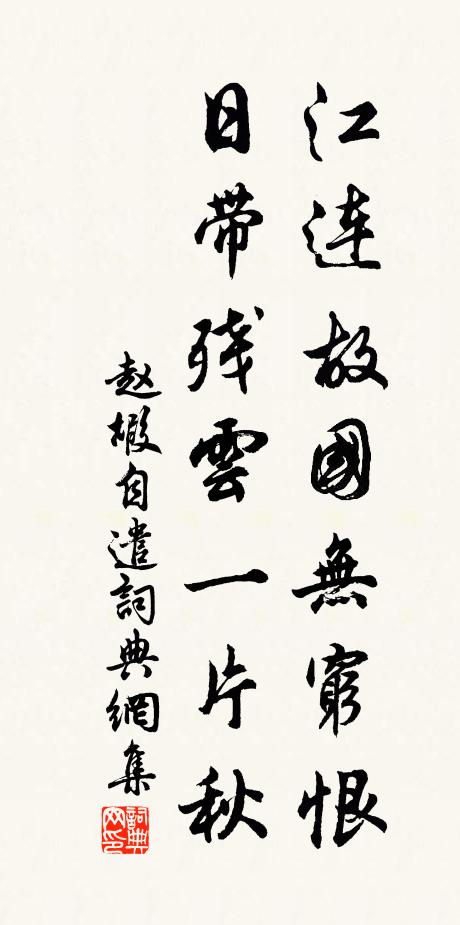 江連故國無窮恨
日帶残雲一片秋
赵嘏自遣詞典網集
詞典网印